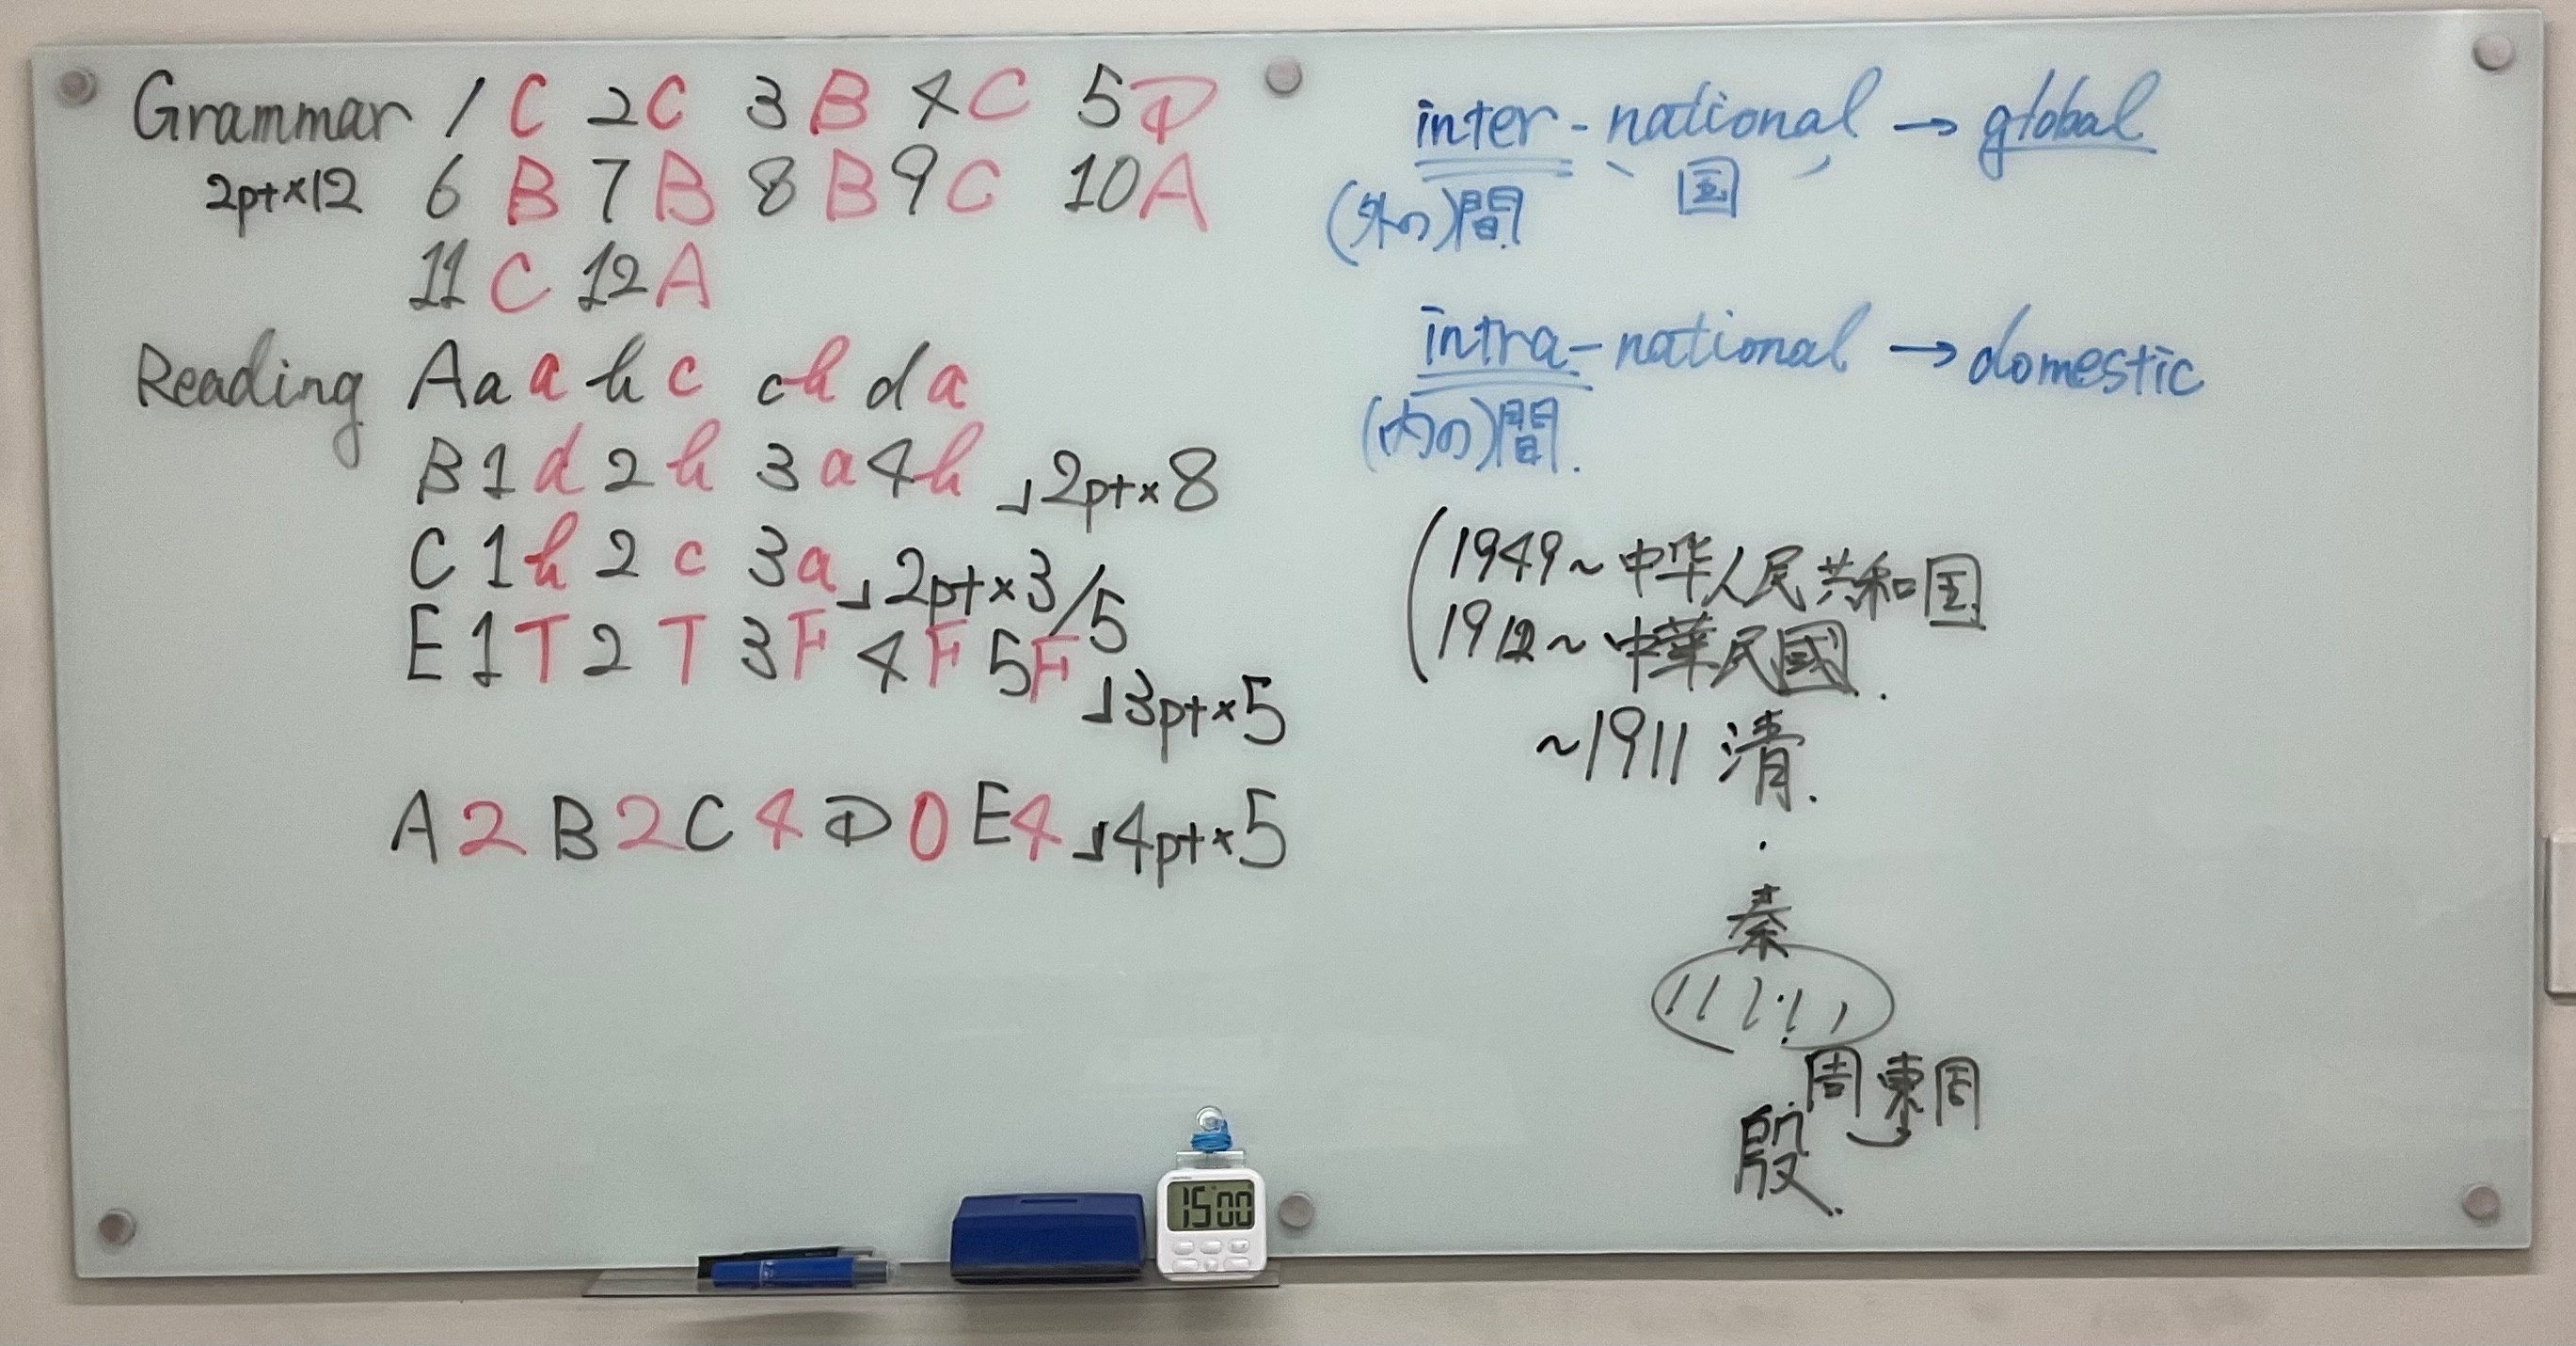 Grammar 1 C 2 C 3 B 4 C 5 D
2pt×12 6 B 7 B 8 B 9 C 10 A
11 C 12 A
Reading A a a b c c b d a
B 1 d 2 b 3 a 4 b 2pt×8
C 1 b 2 c 3 a 2pt×3/5
E 1 T 2 T 3 F 4 F 5 F 3pt×5
A 2 B 2 C 4 D 0 E 4 4pt×5
inter-national → global
(外の)間 国
intra-national → domestic
(内の)間.
1949~中华人民共和国
1912~中華民國.
~1911 清.
秦
周 東周
殷.
15:00